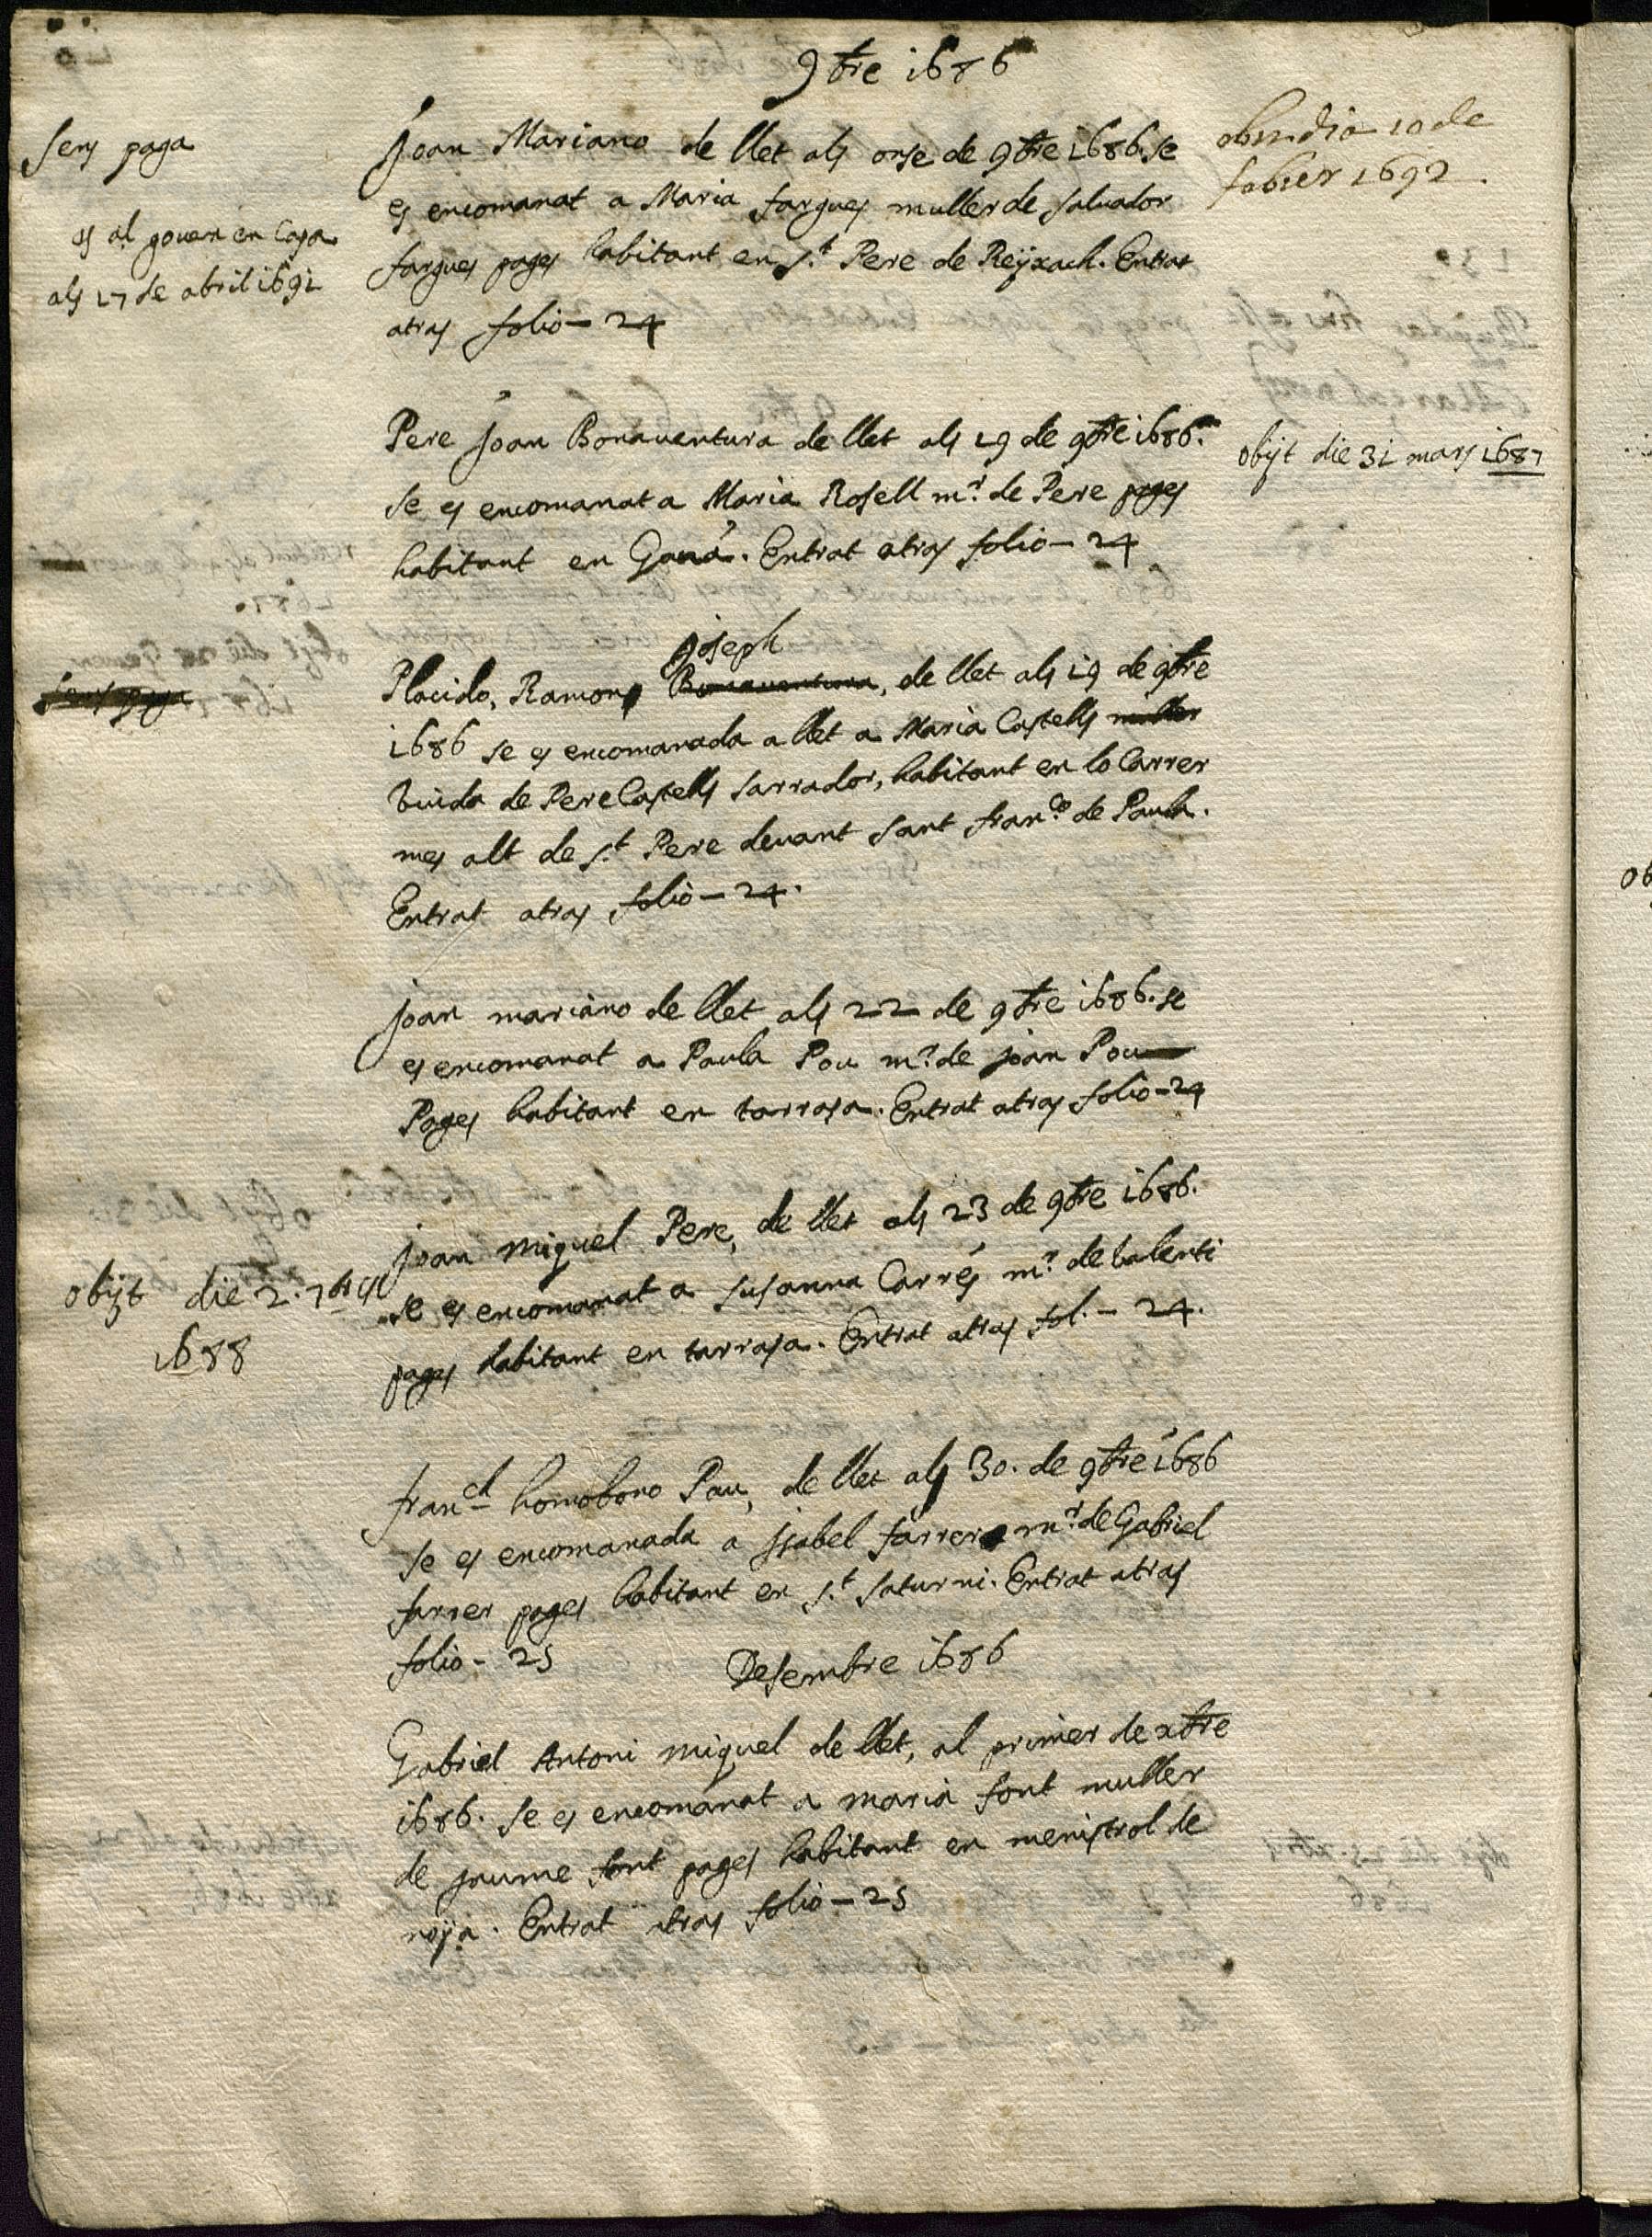 9bre 1686
Sens paga
es al govern en Casa
als 17 de abril 1691
Joan Mariano de llet als onse de 9bre 1686. se
es encomanat a Maria fargues muller de saluador
fargues pages habitant en St. Pere de Reÿxach. Entrat
atras folio - 24
dia 10 de
1692.
Pere Joan Bonauentura de llet als 19 de 9bre 1686.
se es encomanat a Maria Rosell mr. de Pere pages
habitant en Gauà. Entrat atras folio - 24
obijt die 31 mars 1687
sens paga
Joseph
Placido, Ramon, Bonauentura, de llet als 19 de 9bre
1686 se es encomanada a llet a Maria Castells muller
viuda de Pere Castells sarrador, habitant en lo Carrer
mes alt de St. Pere deuant sant franco. de Paula.
Entrat atras folio - 24.
Joan mariano de llet als 22 de 9bre 1686. se
es encomanat a Paula Pou mr. de joan Pou
Pages habitant en tarrasa. Entrat atras folio - 24
obijt die 2. 7bris
1688
Joan Miquel Pere, de llet als 23 de 9bre 1686.
se es encomanat a susanna Carrés mr. de balenti
pages habitant en tarrasa. Entrat atras fol. - 24.
franch homobono Pau, de llet als 30. de 9bre 1686
se es encomanada a jsabel farrer mr. de Gabriel
farrer pages habitant en St. saturni. Entrat atras
folio - 25
Desembre 1686
Gabriel Antoni miquel de llet, al primer de xbre
1686. se es encomanat a maria font muller
de jaume font pages habitant en menistrol de
noÿa. Entrat atras folio - 25